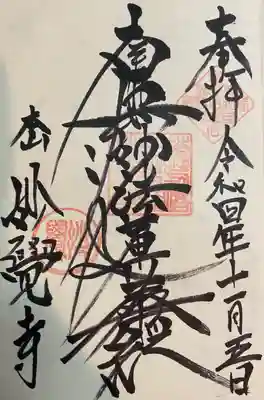 奉拝 令和四年十一月五日
南無妙法蓮華経
妙覺寺